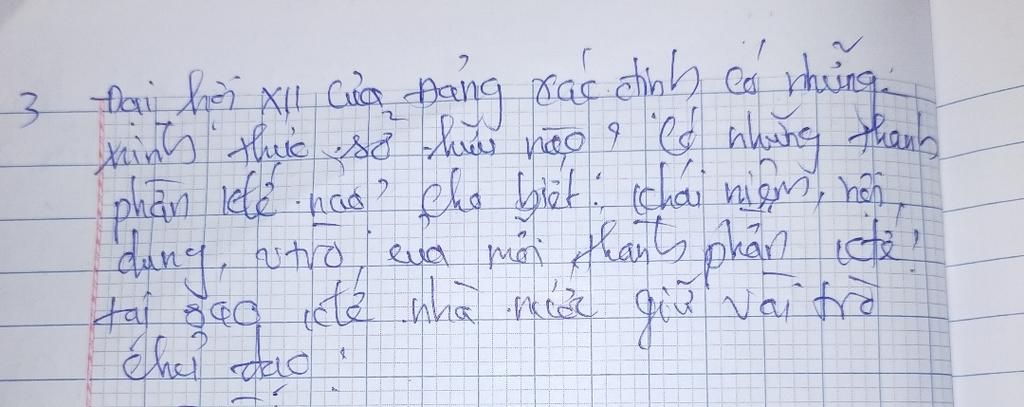 3 Đại hội XII của Đảng xác định có những
hình thức sở hữu nào? Có những thành
phần ktế nào? Cho biết: khái niệm, nội
dung, vtrò của mỗi thành phần ktế?
tại sao ktế nhà nước giữ vai trò
chủ đạo?